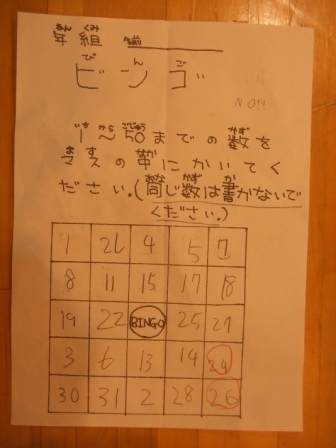 年組 名前
ビンゴ
NO!!!
1~50までの数を
マスの中にかいてく
ださい。(同じ数は書かないで
ください。)
1 21 4 5 7
8 11 15 17 18
19 22 BINGO 25 27
3 6 13 14 24
30 31 2 28 26